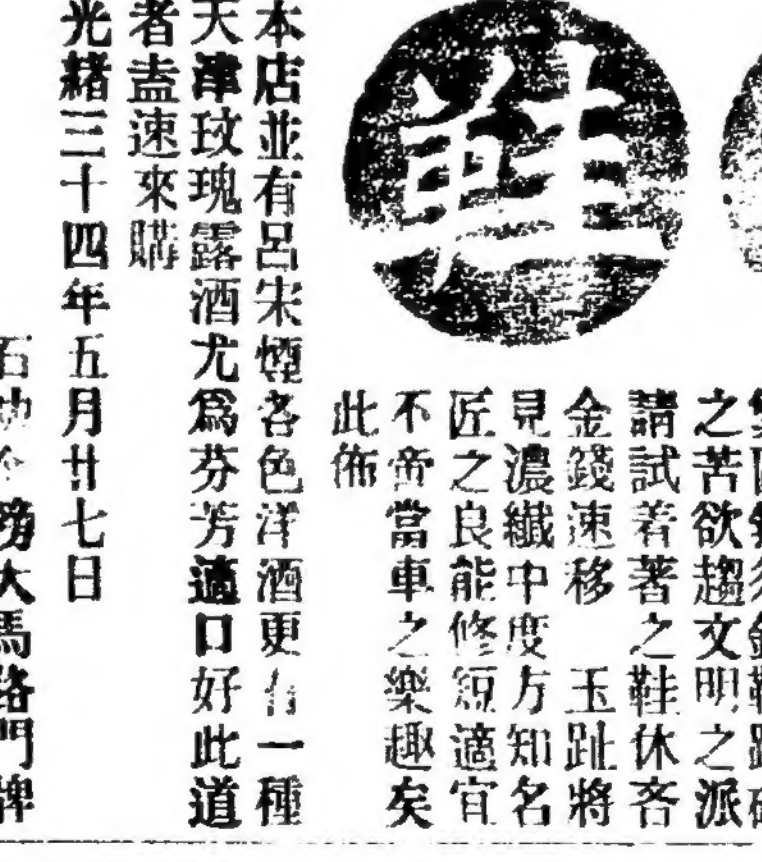 鞋
之苦欲趨文明之派
請試着著之鞋休吝
金錢速移　玉趾將
見濃纖中度方知名
匠之良能修短適宜
不啻當車之樂趣矣
此佈
本店並有呂宋煙各色洋酒更有一種
天津玫瑰露酒尤爲芬芳適口好此道
者盍速來購
光緒三十四年五月廿七日
大馬路門牌